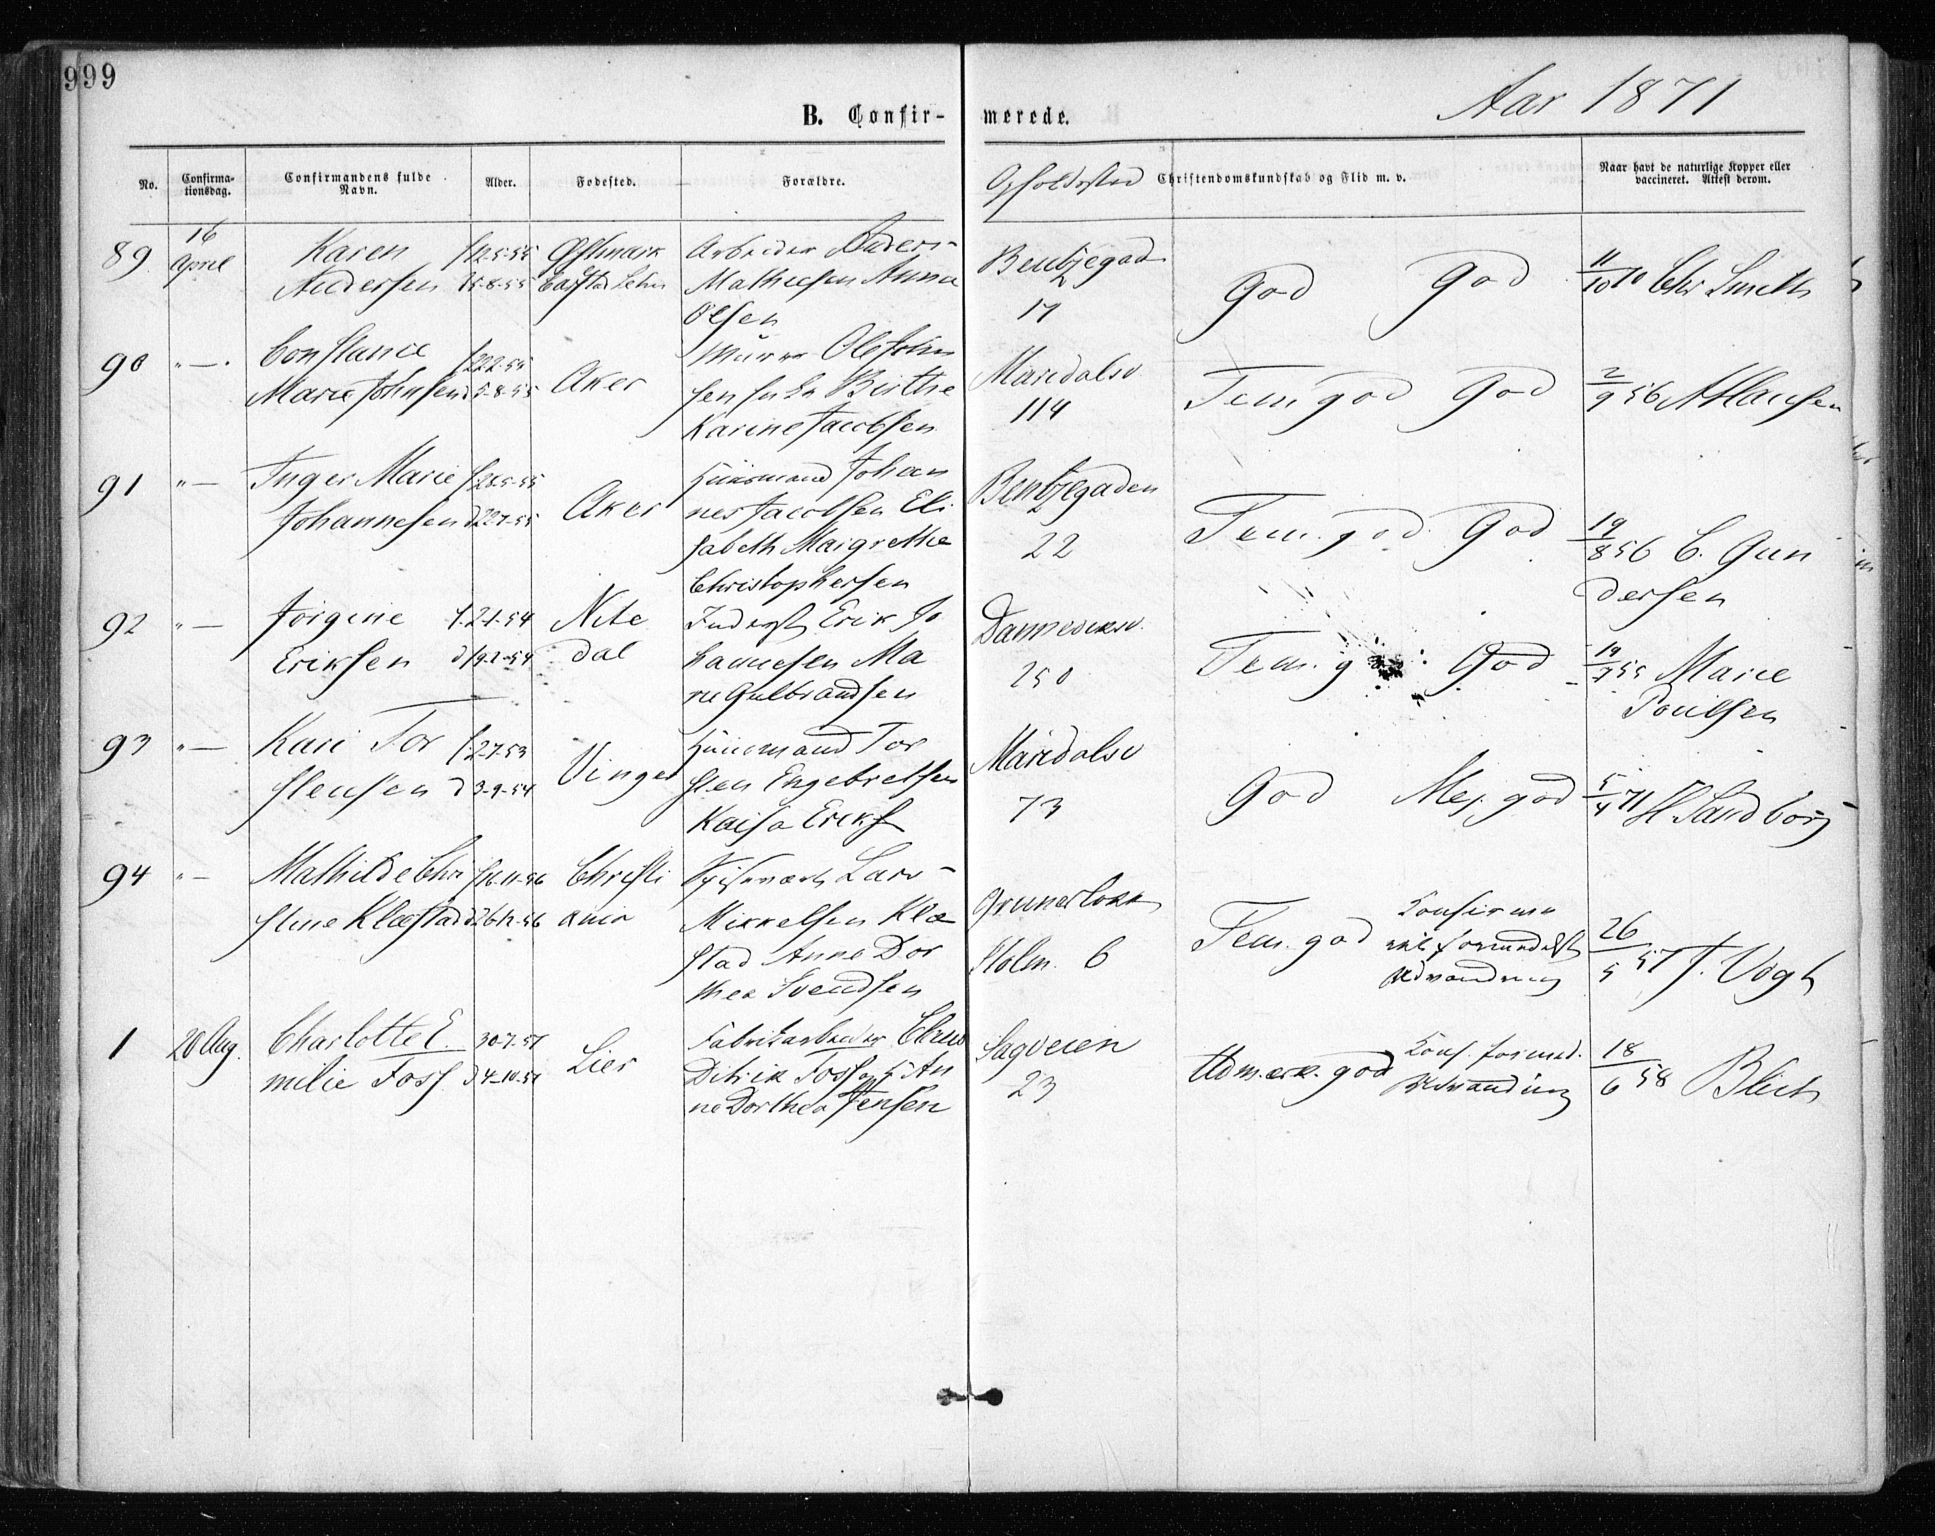 999
Aar 1871
B. Confirmerede.
No.
Confirma-
tionsdag.
Confirmandens fulde
Navn.
Alder.
Fødested.
Forældre.
Opholdssted
Christendomskundskab og Flid m. v.
Naar havt de naturlige Kopper eller
vaccineret. Attest derom.
89
16
April
Karen
Andersen
Arbeider Anders
Mathiesen Anna
Olsen
Bentzegad
17
God God
11/10 70 Chr Smith
90
"—
Constance
Marie Johnsen
f 22-2-55
d 5-8-55
Aker
Murer Ole John
sen Birthe
Karine Jacobsen
Maridalsv
114
Tem god God
2/9 56 A Hansen
91
"—
Inger Marie
Johannesen
Aker
Huusmand Johan
nes Jacobsen Eli
sabeth Margrethe
Christophersen
Bentzegaden
22
Tem. god God
19/8 56 C. Gun
dersen
92
"—
Jørgine
Eriksen
f. 2-1-54
d 19-2-54
Nite
dal
Inderst Erik Jo
hannesen Ma
rie Gulbrandsen
250
Tem. god God
19/7 55 Marie
Poulsen
93
"—
Kari Tor
stensen
f. 2-7-53
d 3-9-54
Vinger
Huusmand Tor
sten Engebretsen
Kaisa Eriks
Maridalsv
73
God Meg. god
5/4 71 H Sandborg
94
"—
Mathilde Chri
stine Klæstad
f 16-11-56
d 26-12-56
Christi
ania
Lars
Mikkelsen Klæ
stad Anne Dor
thea Svendsen
Grunerløkk
Holm. 6
Tem. god
Konfirme
Udvandring
26/5 57 J. Vogt
1
20 Aug.
Charlotte E.
milie Foss
30-7-57
d 4-10-57
Lier
Fabrikarbeider Claus
Ditrik Foss og h An
ne Dorthea Jensen
Sagveien
23
Udmærk. god
Konf. formed.
Udvandring
18/6 58 Blich